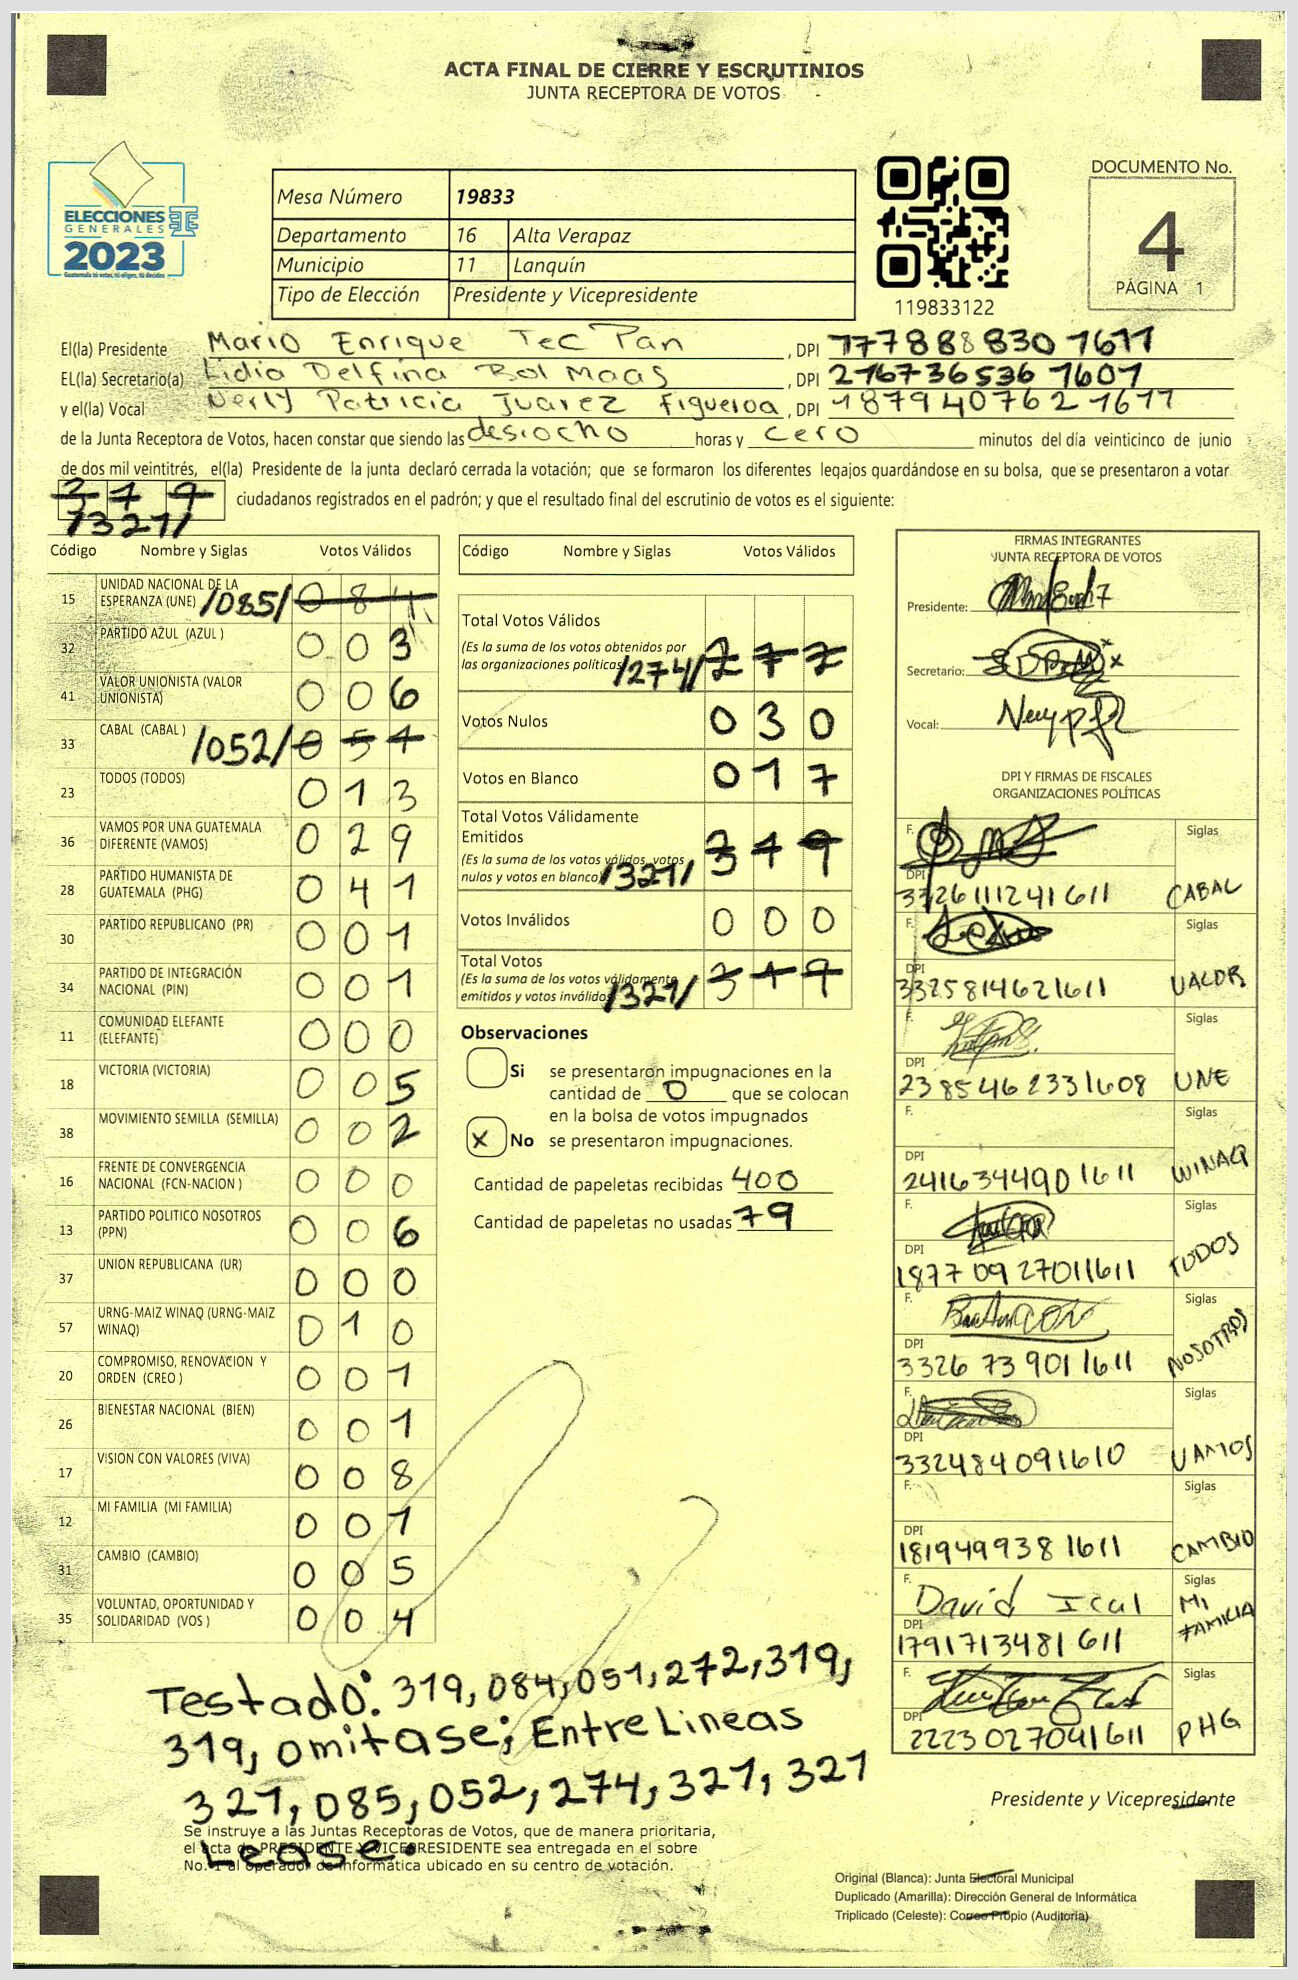 ACTA FINAL DE CIERRE Y ESCRUTINIOS
JUNTA RECEPTORA DE VOTOS
ELECCIONES
GENERALES
2023
Guatemala tú votas, tú eliges, tú decides
Mesa Número 19833
Departamento 16 Alta Verapaz
Municipio 11 Lanquín
Tipo de Elección Presidente y Vicepresidente
119833122
DOCUMENTO No.
4
PÁGINA 1
El(la) Presidente Mario Enrique Tec Pan, DPI 1778888301611
EL(la) Secretario(a) Lidia Delfina Bol Maas, DPI 2167365361601
y el(la) Vocal Nerly Patricia Juarez Figueroa, DPI 1879407621611
de la Junta Receptora de Votos, hacen constar que siendo las desiocho horas y cero minutos del día veinticinco de junio
de dos mil veintitrés, el(la) Presidente de la junta declaró cerrada la votación; que se formaron los diferentes legajos guardándose en su bolsa, que se presentaron a votar
319 ciudadanos registrados en el padrón; y que el resultado final del escrutinio de votos es el siguiente:
/321/
Código Nombre y Siglas Votos Válidos
15 UNIDAD NACIONAL DE LA ESPERANZA (UNE) /085/ 084
32 PARTIDO AZUL (AZUL ) 003
41 VALOR UNIONISTA (VALOR UNIONISTA) 006
33 CABAL (CABAL ) /052/ 051
23 TODOS (TODOS) 013
36 VAMOS POR UNA GUATEMALA DIFERENTE (VAMOS) 029
28 PARTIDO HUMANISTA DE GUATEMALA (PHG) 041
30 PARTIDO REPUBLICANO (PR) 001
34 PARTIDO DE INTEGRACIÓN NACIONAL (PIN) 001
11 COMUNIDAD ELEFANTE (ELEFANTE) 000
18 VICTORIA (VICTORIA) 005
38 MOVIMIENTO SEMILLA (SEMILLA) 002
16 FRENTE DE CONVERGENCIA NACIONAL (FCN-NACION ) 000
13 PARTIDO POLITICO NOSOTROS (PPN) 006
37 UNION REPUBLICANA (UR) 000
57 URNG-MAIZ WINAQ (URNG-MAIZ WINAQ) 010
20 COMPROMISO, RENOVACION Y ORDEN (CREO ) 001
26 BIENESTAR NACIONAL (BIEN) 001
17 VISION CON VALORES (VIVA) 008
12 MI FAMILIA (MI FAMILIA) 001
31 CAMBIO (CAMBIO) 005
35 VOLUNTAD, OPORTUNIDAD Y SOLIDARIDAD (VOS ) 004
Código Nombre y Siglas Votos Válidos
Total Votos Válidos
(Es la suma de los votos obtenidos por
las organizaciones políticas) /274/ 272
Votos Nulos 030
Votos en Blanco 017
Total Votos Válidamente
Emitidos
(Es la suma de los votos válidos, votos
nulos y votos en blanco) /321/ 319
Votos Inválidos 000
Total Votos
(Es la suma de los votos válidamente
emitidos y votos inválidos) /321/ 319
Observaciones
Si se presentaron impugnaciones en la
cantidad de 0 que se colocan
en la bolsa de votos impugnados
X No se presentaron impugnaciones.
Cantidad de papeletas recibidas 400
Cantidad de papeletas no usadas 79
FIRMAS INTEGRANTES
JUNTA RECEPTORA DE VOTOS
Presidente:
Secretario:
Vocal:
DPI Y FIRMAS DE FISCALES
ORGANIZACIONES POLÍTICAS
F. Siglas
DPI 3326111241611 CABAL
F. Siglas
DPI 3325814621611 VALOR
F. Siglas
DPI 2385462331608 UNE
F. Siglas
DPI 2416344901611 WINAQ
F. Siglas
DPI 18770927011611 TODOS
F. Siglas
DPI 3326739011611 NOSOTROS
F. Siglas
DPI 332484091610 VAMOS
F. Siglas
DPI 1819499381611 CAMBIO
F. David Ical Siglas
DPI 1791713481611 MI FAMILIA
F. Siglas
DPI 2223027041611 PHG
Testado: 319, 084, 051, 272, 319,
319, omitase; Entre Lineas
321, 085, 052, 274, 321, 321
Lease.
Presidente y Vicepresidente
Se instruye a las Juntas Receptoras de Votos, que de manera prioritaria,
el acta de PRESIDENTE Y VICEPRESIDENTE sea entregada en el sobre
No. 1 al operador de informática ubicado en su centro de votación.
Original (Blanca): Junta Electoral Municipal
Duplicado (Amarilla): Dirección General de Informática
Triplicado (Celeste): Correo Propio (Auditoría)